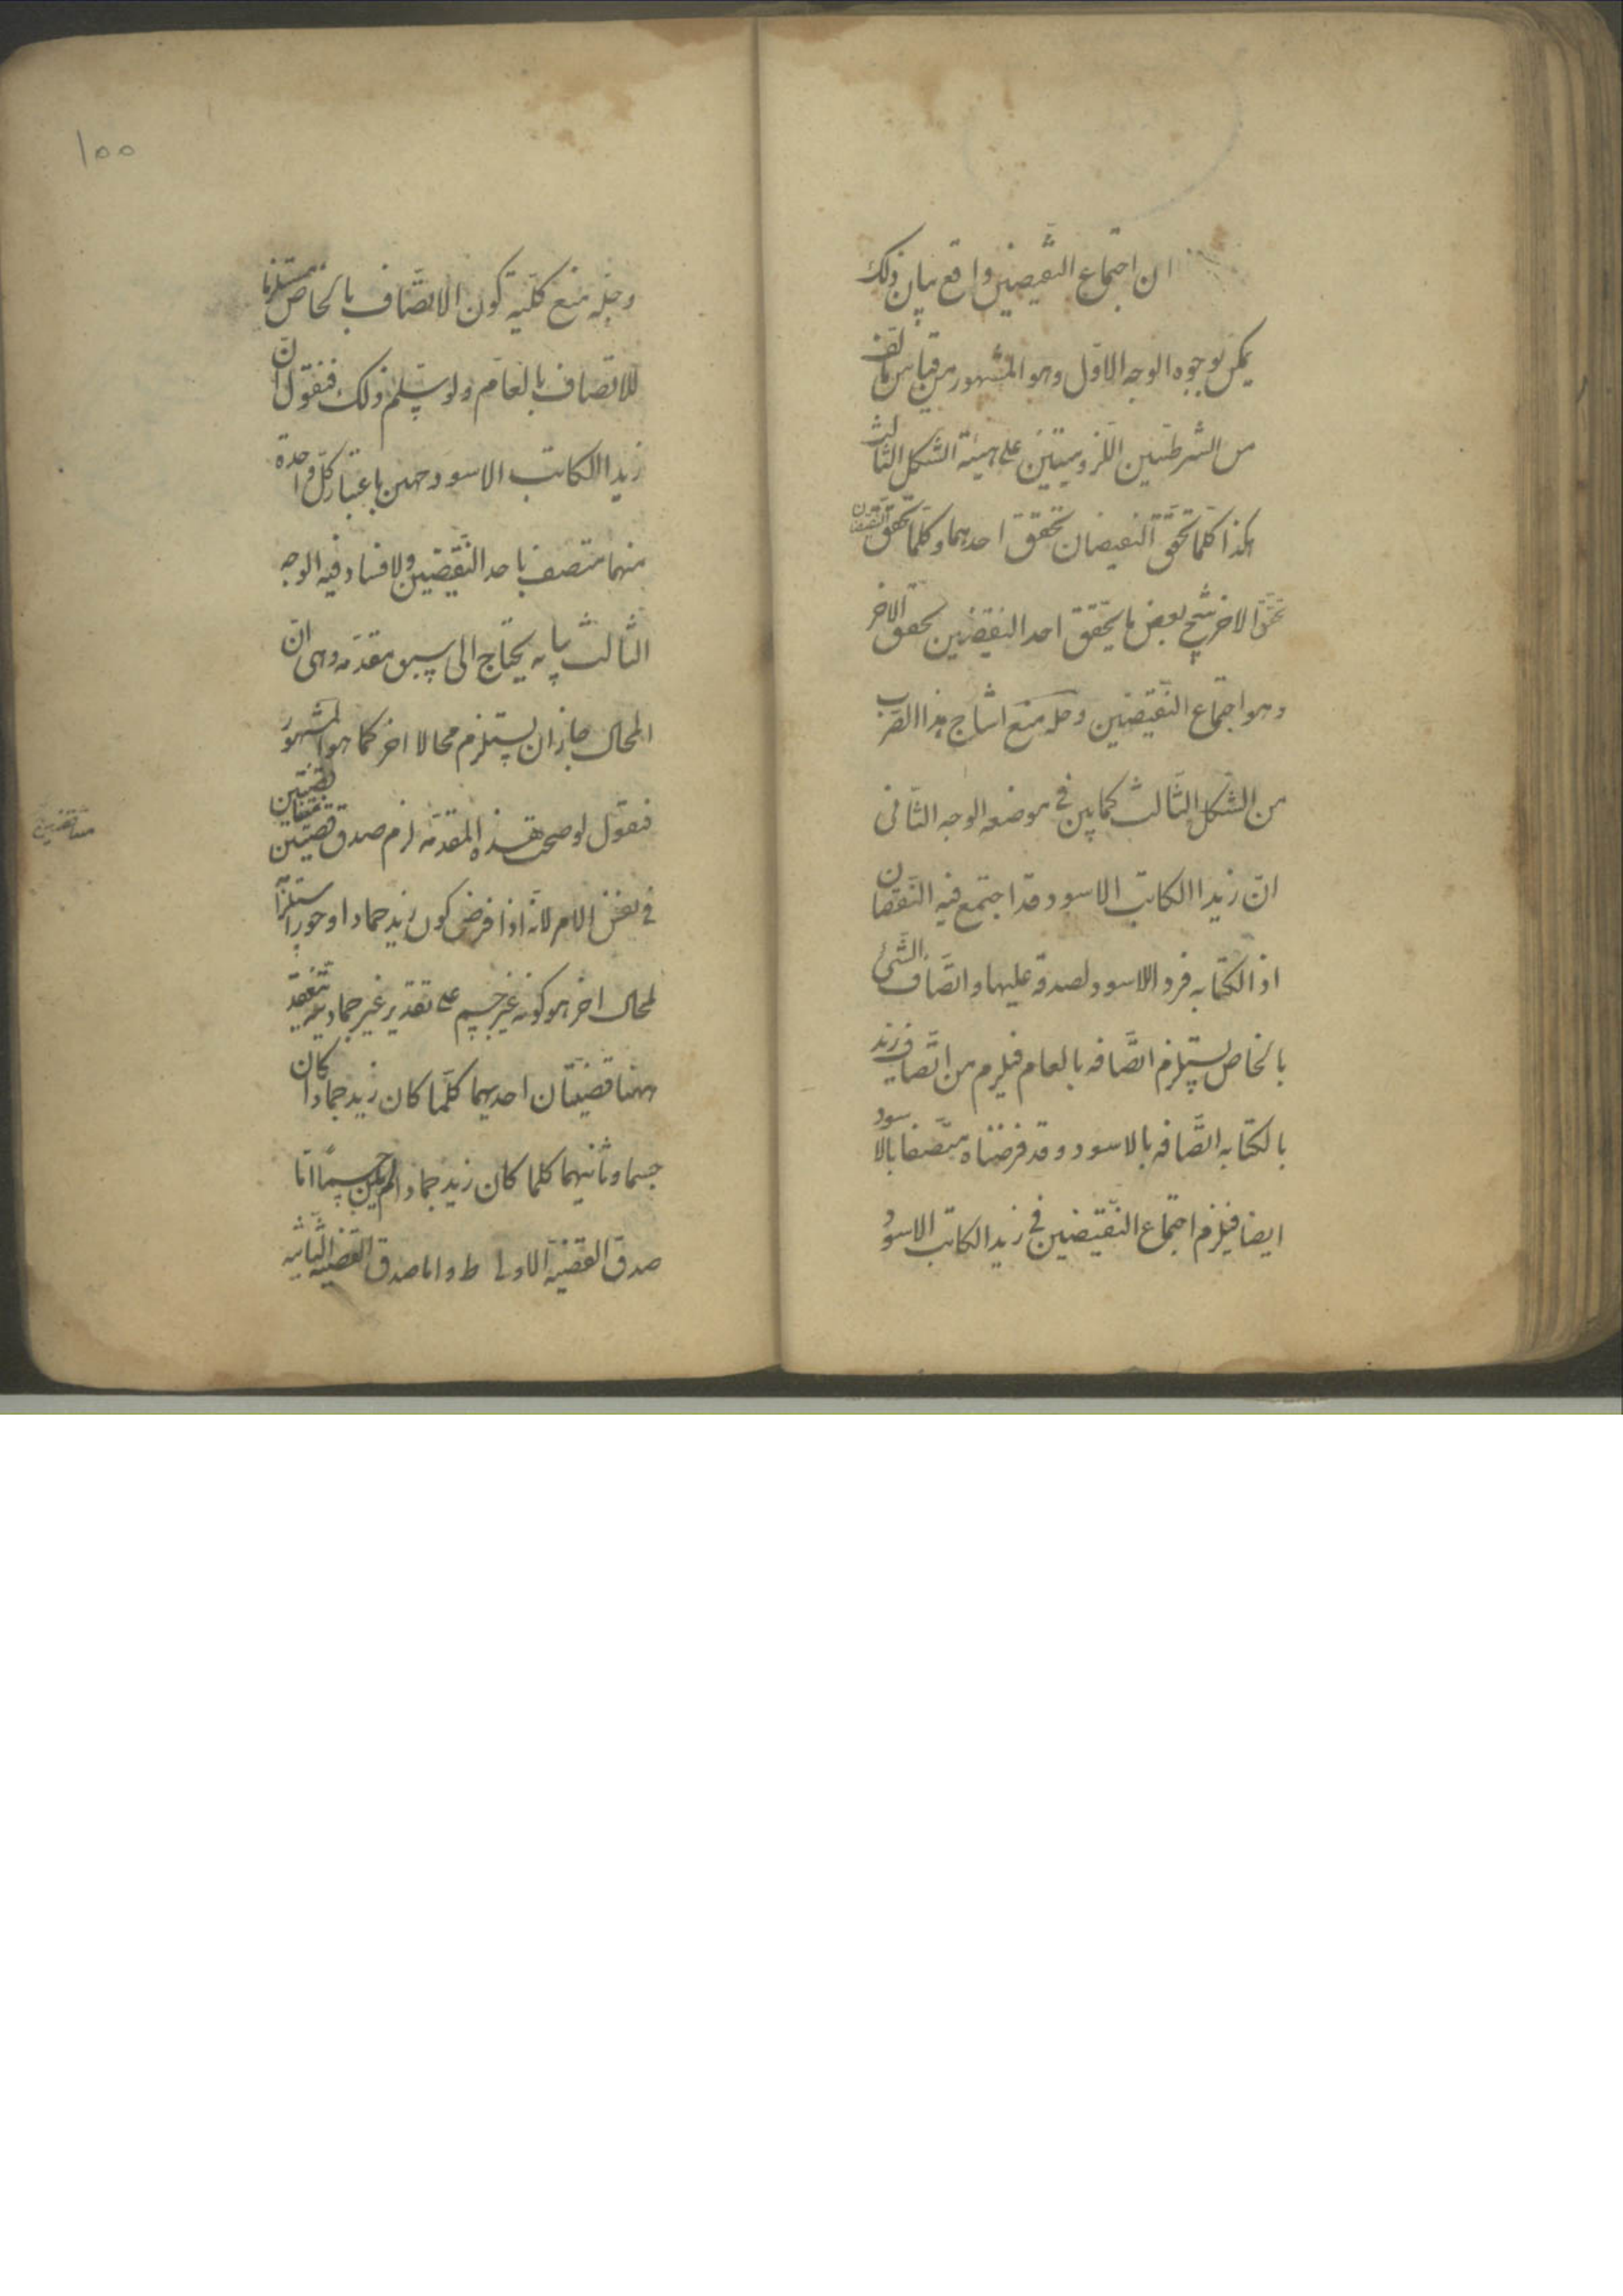 ان اجتماع النقيضين واقع بيان ذلك
يمكن بوجوه الوجه الاول وهو المشهور من قياس مالف
من الشرطيتين اللزوميتين على هيئة الشكل الثالث
هكذا كلما تحقق النقيضان تحقق احدهما وكلما تحقق النقيضان
تحقق الاخر ينتج بعض ما يتحقق احد النقيضين تحقق الاخر
وهو اجتماع النقيضين وحله منع انتاج هذا الضرب
من الشكل الثالث كما بين في موضعه الوجه الثاني
ان زيدا الكاتب الاسود قد اجتمع فيه النقيضان
اذ الكتابه فرد اللاسود لصدقه عليها واتصاف الشئ
بالخاص يستلزم اتصافه بالعام فيلزم من اتصاف زيد
بالكتابه اتصافه بالاسود وقد فرضناه متصفا بالاسود
ايضا فيلزم اجتماع النقيضين في زيد الكاتب الاسود
١٥٥
وحله منع كلية كون الاتصاف بالخاص مستلزما
للاتصاف بالعام ولو سلم ذلك فنقول ان
زيدا الكاتب الاسود جهتين باعتبار كل واحدة
منهما متصف باحد النقيضين ولا فساد فيه الوجه
الثالث بيانه يحتاج الى سبق مقدمه وهي ان
المحال جاز ان يستلزم محالا اخر كما هو المشهور
فنقول لو صحت هذه المقدمه لزم صدق قضيتين
متناقضين
في نفس الامر لانه اذا فرض كون زيد جمادا وجوزا
لمحال اخر هو كونه غير جسم على تقدير غير جماديته
ههنا قضيتان احديهما كلما كان زيد جمادا كان
جسما وثانيهما كلما كان زيد جمادا لم يكن جسما اما
صدق القضية الاولى ط واما صدق القضيه الثانيه